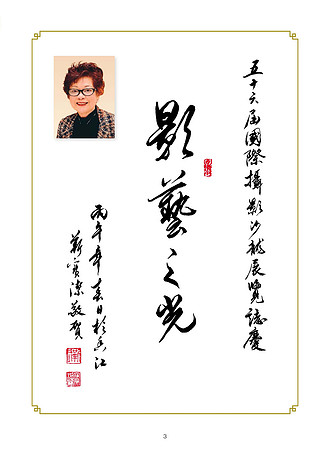 五十六届國際攝影沙龍展覽誌慶
影藝之光
丙午年春日於香江
靳寶潔敬賀
3